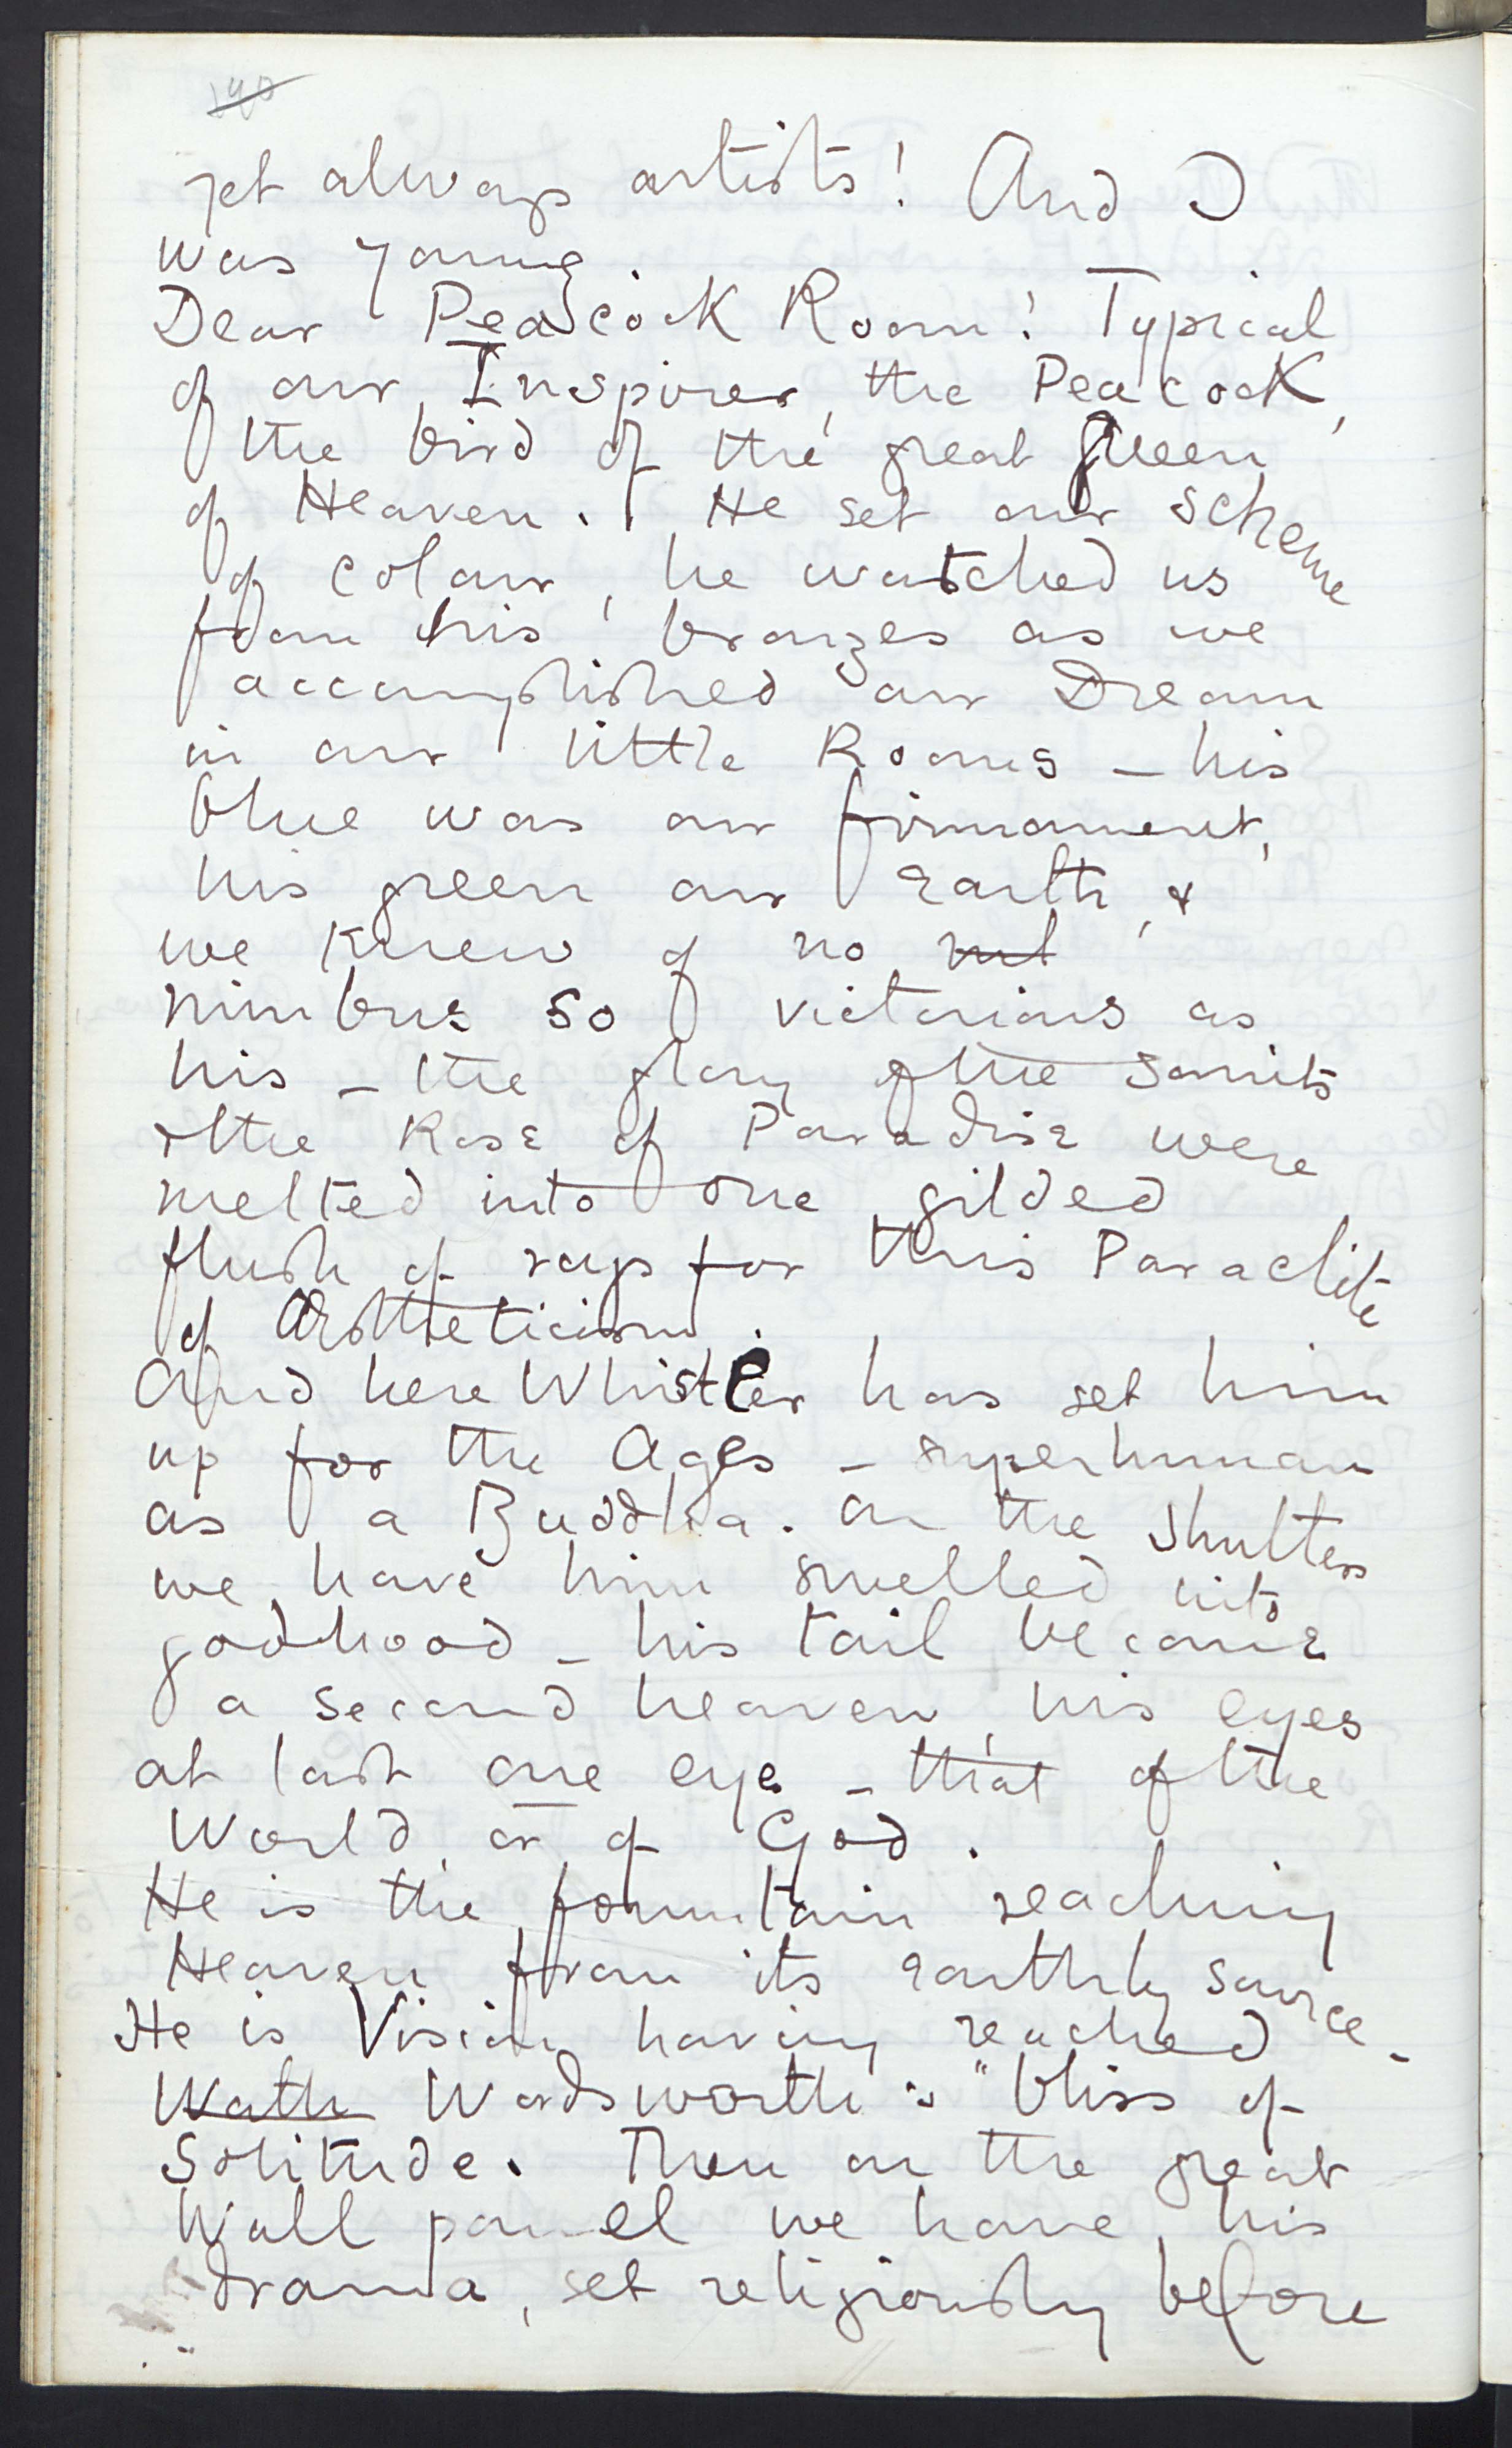 yet always artists! And I
was young.
Dear Peacock Room! Typical
of our Inspirer, the Peacock,
the bird of the great Queen
of Heaven. He set our scheme
of colour, he watched us
from his bronzes as we
accomplished our Dream
in our little Rooms – his
blue was our firmament,
his green our Earth, &
we knew of no
nimbus so victorious as
his – the glory of the Saints
& the Rose of Paradise were
melted into one gilded
flush of rays for this Paraclite
of Æstheticism.
And here Whistler has set him
up for the Ages – superhuman
as a Buddha. On the Shutters
we have him swelled into
godhood – his tail became
a second heaven, his eyes
at last one eye – that of the
World, or of God.
He is the fountain reaching
Heaven from its earthly source.
He is Vision having reached
Wath Wordsworth's "bliss of
Solitude. Then on the great
Wall panel we have his
drama, set religiously before